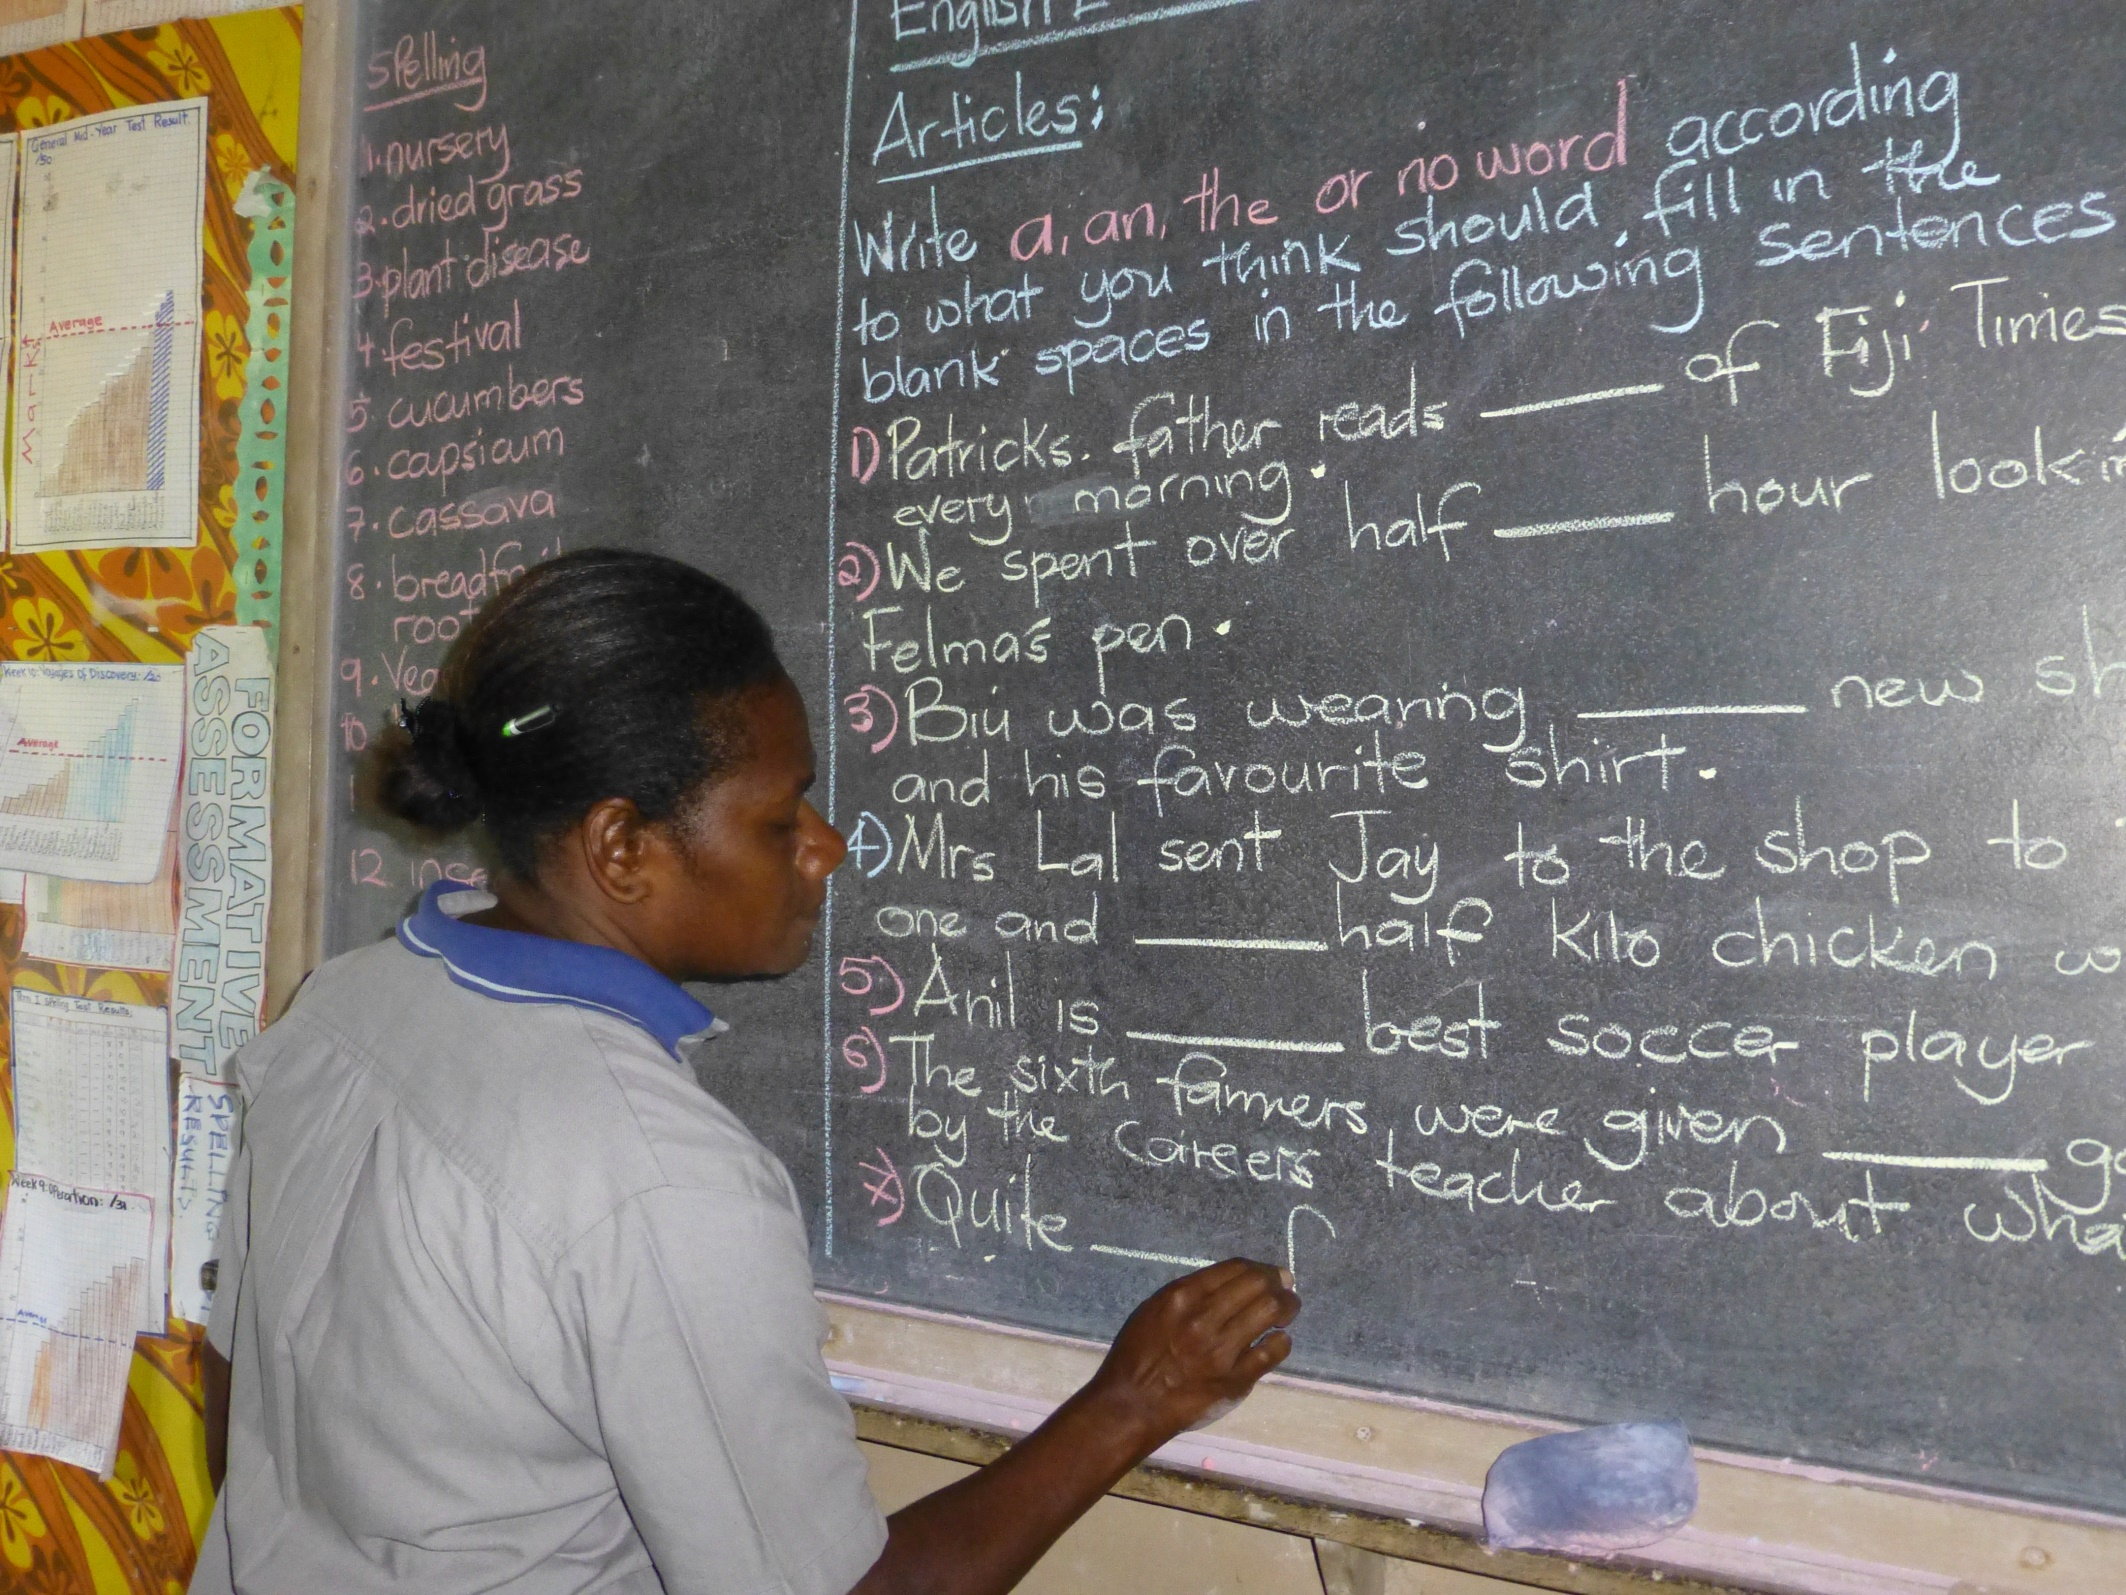 General Mid-Year Test Result
/50
Average
Marks
Week 10: Voyages of Discovery: /20
Average
FORMATIVE
ASSESSMENT
Term I Spelling Test Results
SPELLING
RESULTS
Week 9: Operation: /31
Average
Spelling
1. nursery
2. dried grass
3. plant disease
4 festival
5. cucumbers
6. capsicum
7. cassava
8.
9.
10
12
English
Articles:
Write a, an, the or no word according
to what you think should fill in the
blank spaces in the following sentences
1) Patricks. father reads ____ of Fiji Times
every morning.
2) We spent over half ____ hour
Felma's pen.
3) Biu was wearing ____ new
and his favourite shirt.
4) Mrs Lal sent Jay to the shop to
one and ____ half kilo chicken
5) Anil is ____ best soccer player
6) The sixth farmers were given ____
by the careers teacher about
7) Quite ____